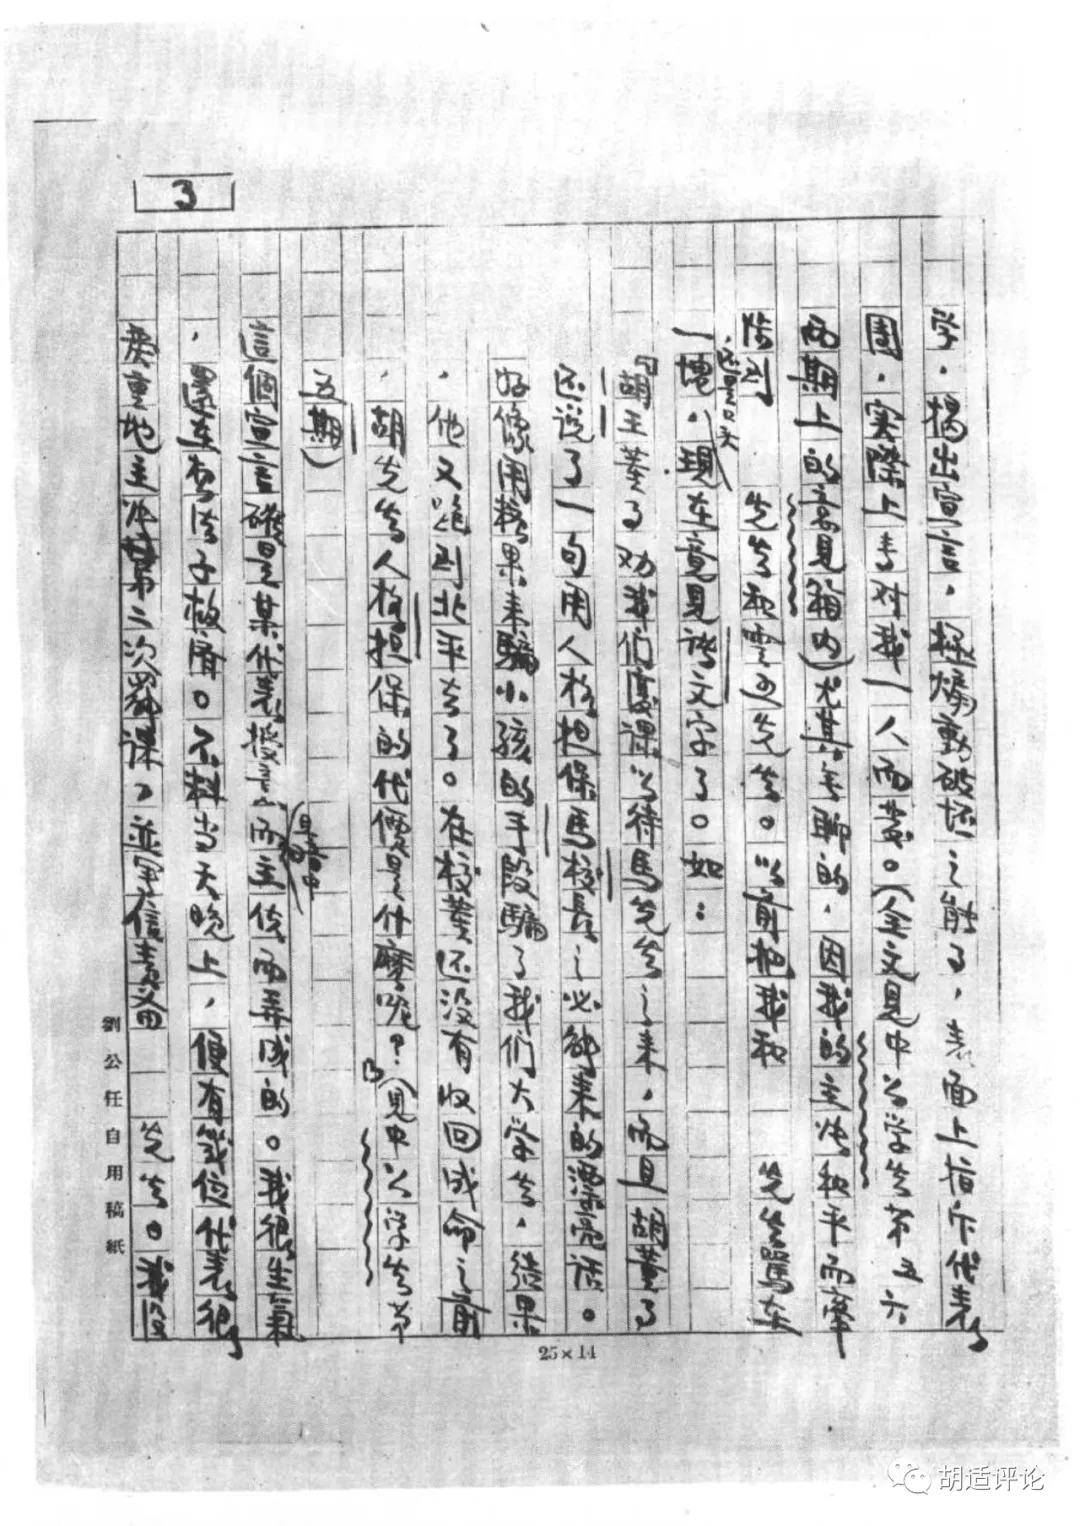 3
学，揭出宣言，极煽動破坏之能了，表面上指斥代表
團，实際上专对我一人而发。（全文見中公学生第五六
两期上的高見箱内）尤其无聊的，因我的主张和平而牵
涉到　先生和雲五先生。以前把我和　先生罵在
一塊，还是口头，現在竟見諸文字了。如：
「胡王董了劝我们復課以待馬先生之来，而且胡董了
还说了一句用人格担保馬校長之必能来的漂亮话。
好像用糖果来騙小孩的手段騙了我们大学生，结果
，他又跑到北平去了。在校董还没有收回成命之前
，胡先生人格担保的代價是什麽呢？」（見中公学生第
五期）
這個宣言確是某代表授意而主使而弄成的。我很生氣
，還在想法子救濟。不料当天晚上，便有幾位代表很
嚴重地主张第二次罷課，並写信責备　先生。我没
劉公任自用稿紙
25×14
胡适评论